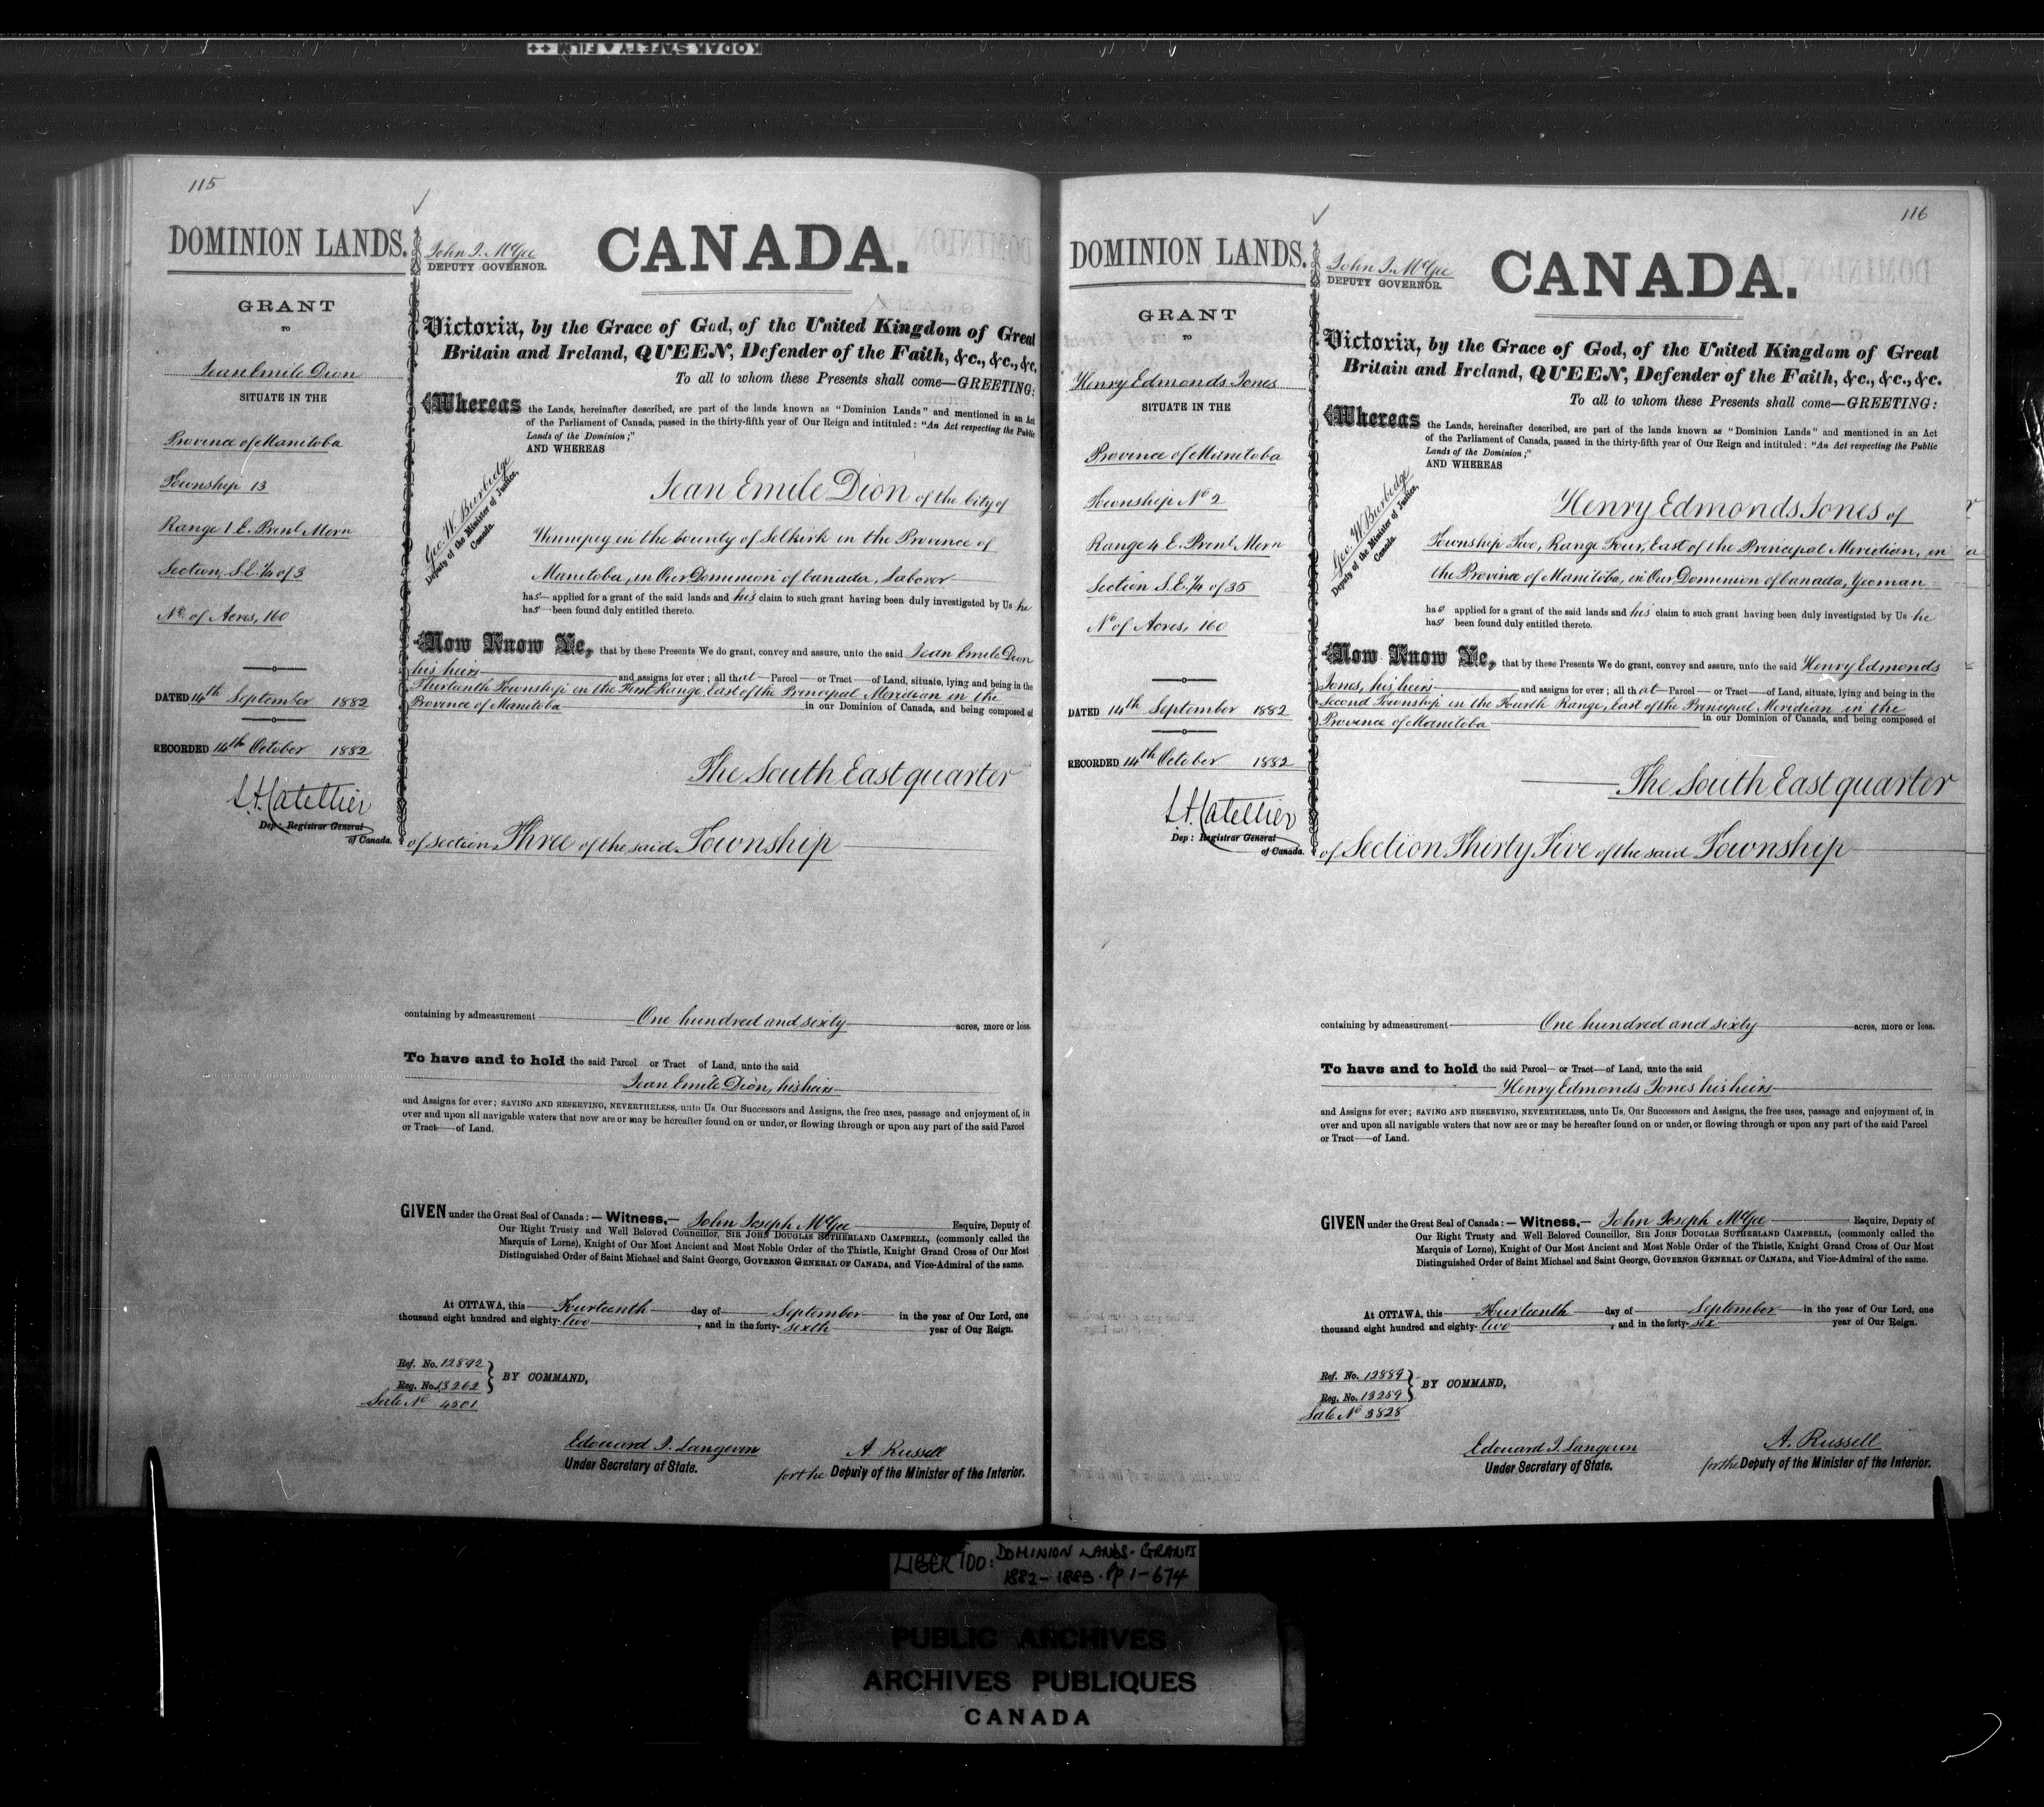 KODAK SAFETY FILM ++
115
DOMINION LANDS.
GRANT
TO
Jean Emile Dion
SITUATE IN THE
Province of Manitoba
Township 13
Range 1 E. Prinl Mern
Section, S.E. 1/4 of 3
No. of Acres, 160
DATED 14th September 1882
RECORDED 14th October 1882
L.A. Catellier
Dep: Registrar General
of Canada.
John J. McGee
DEPUTY GOVERNOR.
CANADA.
Victoria, by the Grace of God, of the United Kingdom of Great
Britain and Ireland, QUEEN, Defender of the Faith, &c., &c., &c.
To all to whom these Presents shall come—GREETING:
Whereas the Lands, hereinafter described, are part of the lands known as "Dominion Lands" and mentioned in an Act
of the Parliament of Canada, passed in the thirty-fifth year of Our Reign and intituled: "An Act respecting the Public
Lands of the Dominion;"
AND WHEREAS
Geo. W. Burbidge
Deputy of the Minister of Justice,
Canada.
Jean Emile Dion of the City of
Winnipeg in the County of Selkirk in the Province of
Manitoba, in Our Dominion of Canada, Laborer
has applied for a grant of the said lands and his claim to such grant having been duly investigated by Us he
has been found duly entitled thereto.
Now Know Ye, that by these Presents We do grant, convey and assure, unto the said Jean Emile Dion
his heirs and assigns for ever; all that Parcel or Tract of Land, situate, lying and being in the
Thirteenth Township in the First Range, East of the Principal Meridian in the
Province of Manitoba in our Dominion of Canada, and being composed of
The South East quarter
of Section Three of the said Township
containing by admeasurement One hundred and sixty acres, more or less.
To have and to hold the said Parcel or Tract of Land, unto the said
Jean Emile Dion, his heirs
and Assigns for ever; SAVING AND RESERVING, NEVERTHELESS, unto Us, Our Successors and Assigns, the free uses, passage and enjoyment of, in
over and upon all navigable waters that now are or may be hereafter found on or under, or flowing through or upon any part of the said Parcel
or Tract of Land.
GIVEN under the Great Seal of Canada:— Witness,— John Joseph McGee Esquire, Deputy of
Our Right Trusty and Well Beloved Councillor, SIR JOHN DOUGLAS SUTHERLAND CAMPBELL, (commonly called the
Marquis of Lorne), Knight of Our Most Ancient and Most Noble Order of the Thistle, Knight Grand Cross of Our Most
Distinguished Order of Saint Michael and Saint George, GOVERNOR GENERAL OF CANADA, and Vice-Admiral of the same.
At OTTAWA, this Fourteenth day of September in the year of Our Lord, one
thousand eight hundred and eighty-two, and in the forty-sixth year of Our Reign.
Ref. No. 12892
Reg. No. 13262
Sale No 4501
BY COMMAND,
Edouard J. Langevin
Under Secretary of State.
A Russell
for the Deputy of the Minister of the Interior.
116
DOMINION LANDS.
GRANT
TO
Henry Edmonds Jones
SITUATE IN THE
Province of Manitoba
Township No 2
Range 4 E. Prinl Mern
Section S.E. 1/4 of 35
No of Acres, 160
DATED 14th September 1882
RECORDED 14th October 1882
L.A. Catellier
Dep: Registrar General
of Canada.
John J. McGee
DEPUTY GOVERNOR.
CANADA.
Victoria, by the Grace of God, of the United Kingdom of Great
Britain and Ireland, QUEEN, Defender of the Faith, &c., &c., &c.
To all to whom these Presents shall come—GREETING:
Whereas the Lands, hereinafter described, are part of the lands known as "Dominion Lands" and mentioned in an Act
of the Parliament of Canada, passed in the thirty-fifth year of Our Reign and intituled: "An Act respecting the Public
Lands of the Dominion;"
AND WHEREAS
Geo. W. Burbidge
Deputy of the Minister of Justice,
Canada.
Henry Edmonds Jones of
Township Two, Range Four, East of the Principal Meridian, in
the Province of Manitoba, in Our Dominion of Canada, Yeoman
has applied for a grant of the said lands and his claim to such grant having been duly investigated by Us he
has been found duly entitled thereto.
Now Know Ye, that by these Presents We do grant, convey and assure, unto the said Henry Edmonds
Jones, his heirs and assigns for ever; all that Parcel or Tract of Land, situate, lying and being in the
Second Township in the Fourth Range, East of the Principal Meridian in the
Province of Manitoba in our Dominion of Canada, and being composed of
The South East quarter
of Section Thirty Five of the said Township
containing by admeasurement One hundred and sixty acres, more or less.
To have and to hold the said Parcel or Tract of Land, unto the said
Henry Edmonds Jones his heirs
and Assigns for ever; SAVING AND RESERVING, NEVERTHELESS, unto Us, Our Successors and Assigns, the free uses, passage and enjoyment of, in
over and upon all navigable waters that now are or may be hereafter found on or under, or flowing through or upon any part of the said Parcel
or Tract of Land.
GIVEN under the Great Seal of Canada:— Witness,— John Joseph McGee Esquire, Deputy of
Our Right Trusty and Well Beloved Councillor, SIR JOHN DOUGLAS SUTHERLAND CAMPBELL, (commonly called the
Marquis of Lorne), Knight of Our Most Ancient and Most Noble Order of the Thistle, Knight Grand Cross of Our Most
Distinguished Order of Saint Michael and Saint George, GOVERNOR GENERAL OF CANADA, and Vice-Admiral of the same.
At OTTAWA, this Fourteenth day of September in the year of Our Lord, one
thousand eight hundred and eighty-two, and in the forty-six year of Our Reign.
Ref. No. 12889
Reg. No. 13259
Sale No 3828
BY COMMAND,
Edouard J. Langevin
Under Secretary of State.
A. Russell
for the Deputy of the Minister of the Interior.
LIBER 100: DOMINION LANDS-GRANTS
1882-1883. Pp 1-674
PUBLIC ARCHIVES
ARCHIVES PUBLIQUES
CANADA